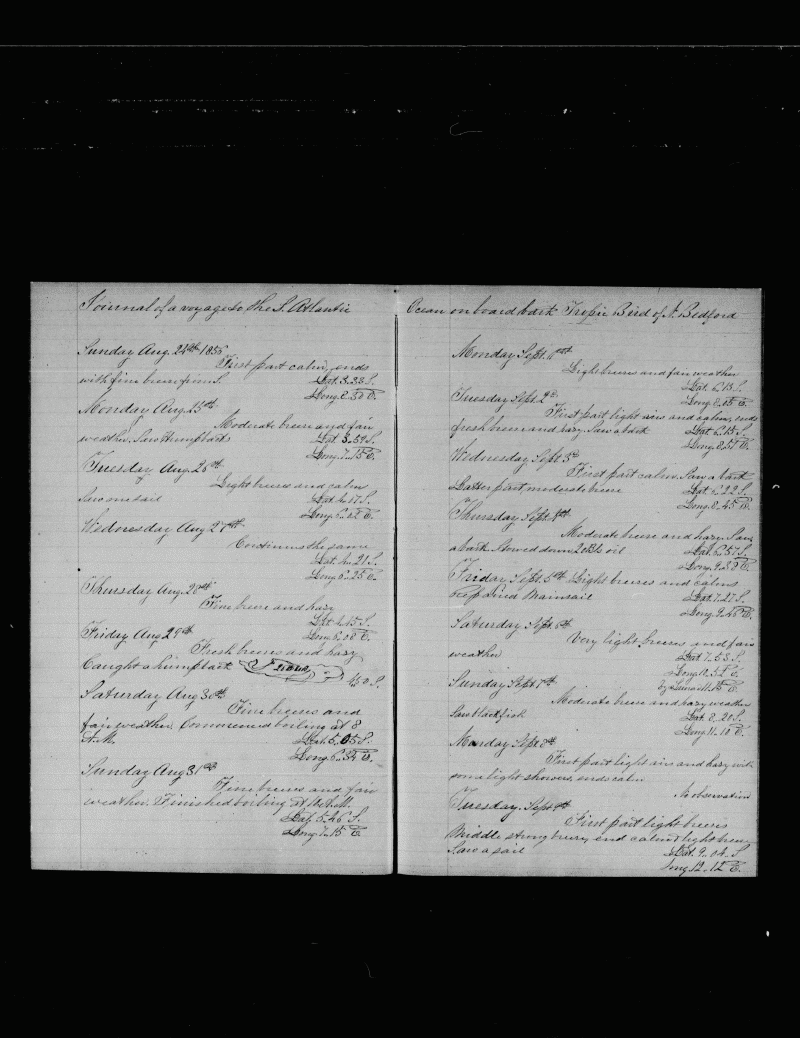 Journal of a voyage to the S. Atlantic
Sunday Aug. 24th 1856
First part calm, ends
with fine breeze from S. Lat. 3.33 S.
Long. 8.30 E.
Monday Aug. 25th
Moderate breeze and fair
weather. Saw Humpbacks Lat. 3.59 S.
Long. 7.15 E.
Tuesday Aug. 26th
Light breeze and calm
Saw one sail Lat. 4.17 S.
Long. E.
Wednesday Aug 27th
Continues the same
Lat. 4.21 S.
Long. 6.25 E.
Thursday Aug. 28th
Fine breeze and hazy
Lat. 4.45 S.
Long. 6.08 E.
Friday Aug 29th
Fresh breeze and hazy
Caught a humpback S.
Saturday Aug 30th
Fine breezes and
fair weather. Commenced boiling at 8
A.M. Lat. 5.05 S.
Long. 6.34 E.
Sunday Aug 31st
Fine breezes and fair
weather. Finished boiling at A.M.
Lat. 5.46 S.
Long. 7.15 E.
Ocean on board bark Tropic Bird of N. Bedford
Monday Sept. 1st
Light breeze and fair weather
Lat. 6.13 S.
Long. 8.05 E.
Tuesday Sept. 2d
First part light airs and calm, ends
fresh breeze and hazy. Saw a bark Lat. 6.15 S.
Long. 8.51 E.
Wednesday Sept. 3d
First part calm. Saw a bark
Latter part moderate breeze Lat. 6.22 S.
Long. 8.45 E.
Thursday Sept. 4th
Moderate breeze and hazy. Saw
a bark. Stowed down oil Lat. 6.57 S.
Long. 9.38 E.
Friday Sept. 5th Light breezes and calms
Repaired Mainsail Lat. 7.27 S.
Long. 9.46 E.
Saturday Sept. 6th
Very light breezes and fair
weather Lat. 7.58 S.
Long. E.
by Lunar 11.15 E.
Sunday Sept 7th
Moderate breeze and hazy weather
Saw blackfish Lat. 8.20 S.
Long. 11.10 E.
Monday Sept 8th
First part light airs and hazy with
some light showers, ends calm
No observation
Tuesday. Sept. 9th
First part light breezes
Middle strong breeze, end calm & light breeze
Saw a sail Lat. 9.04 S
Long. 12.12 E.